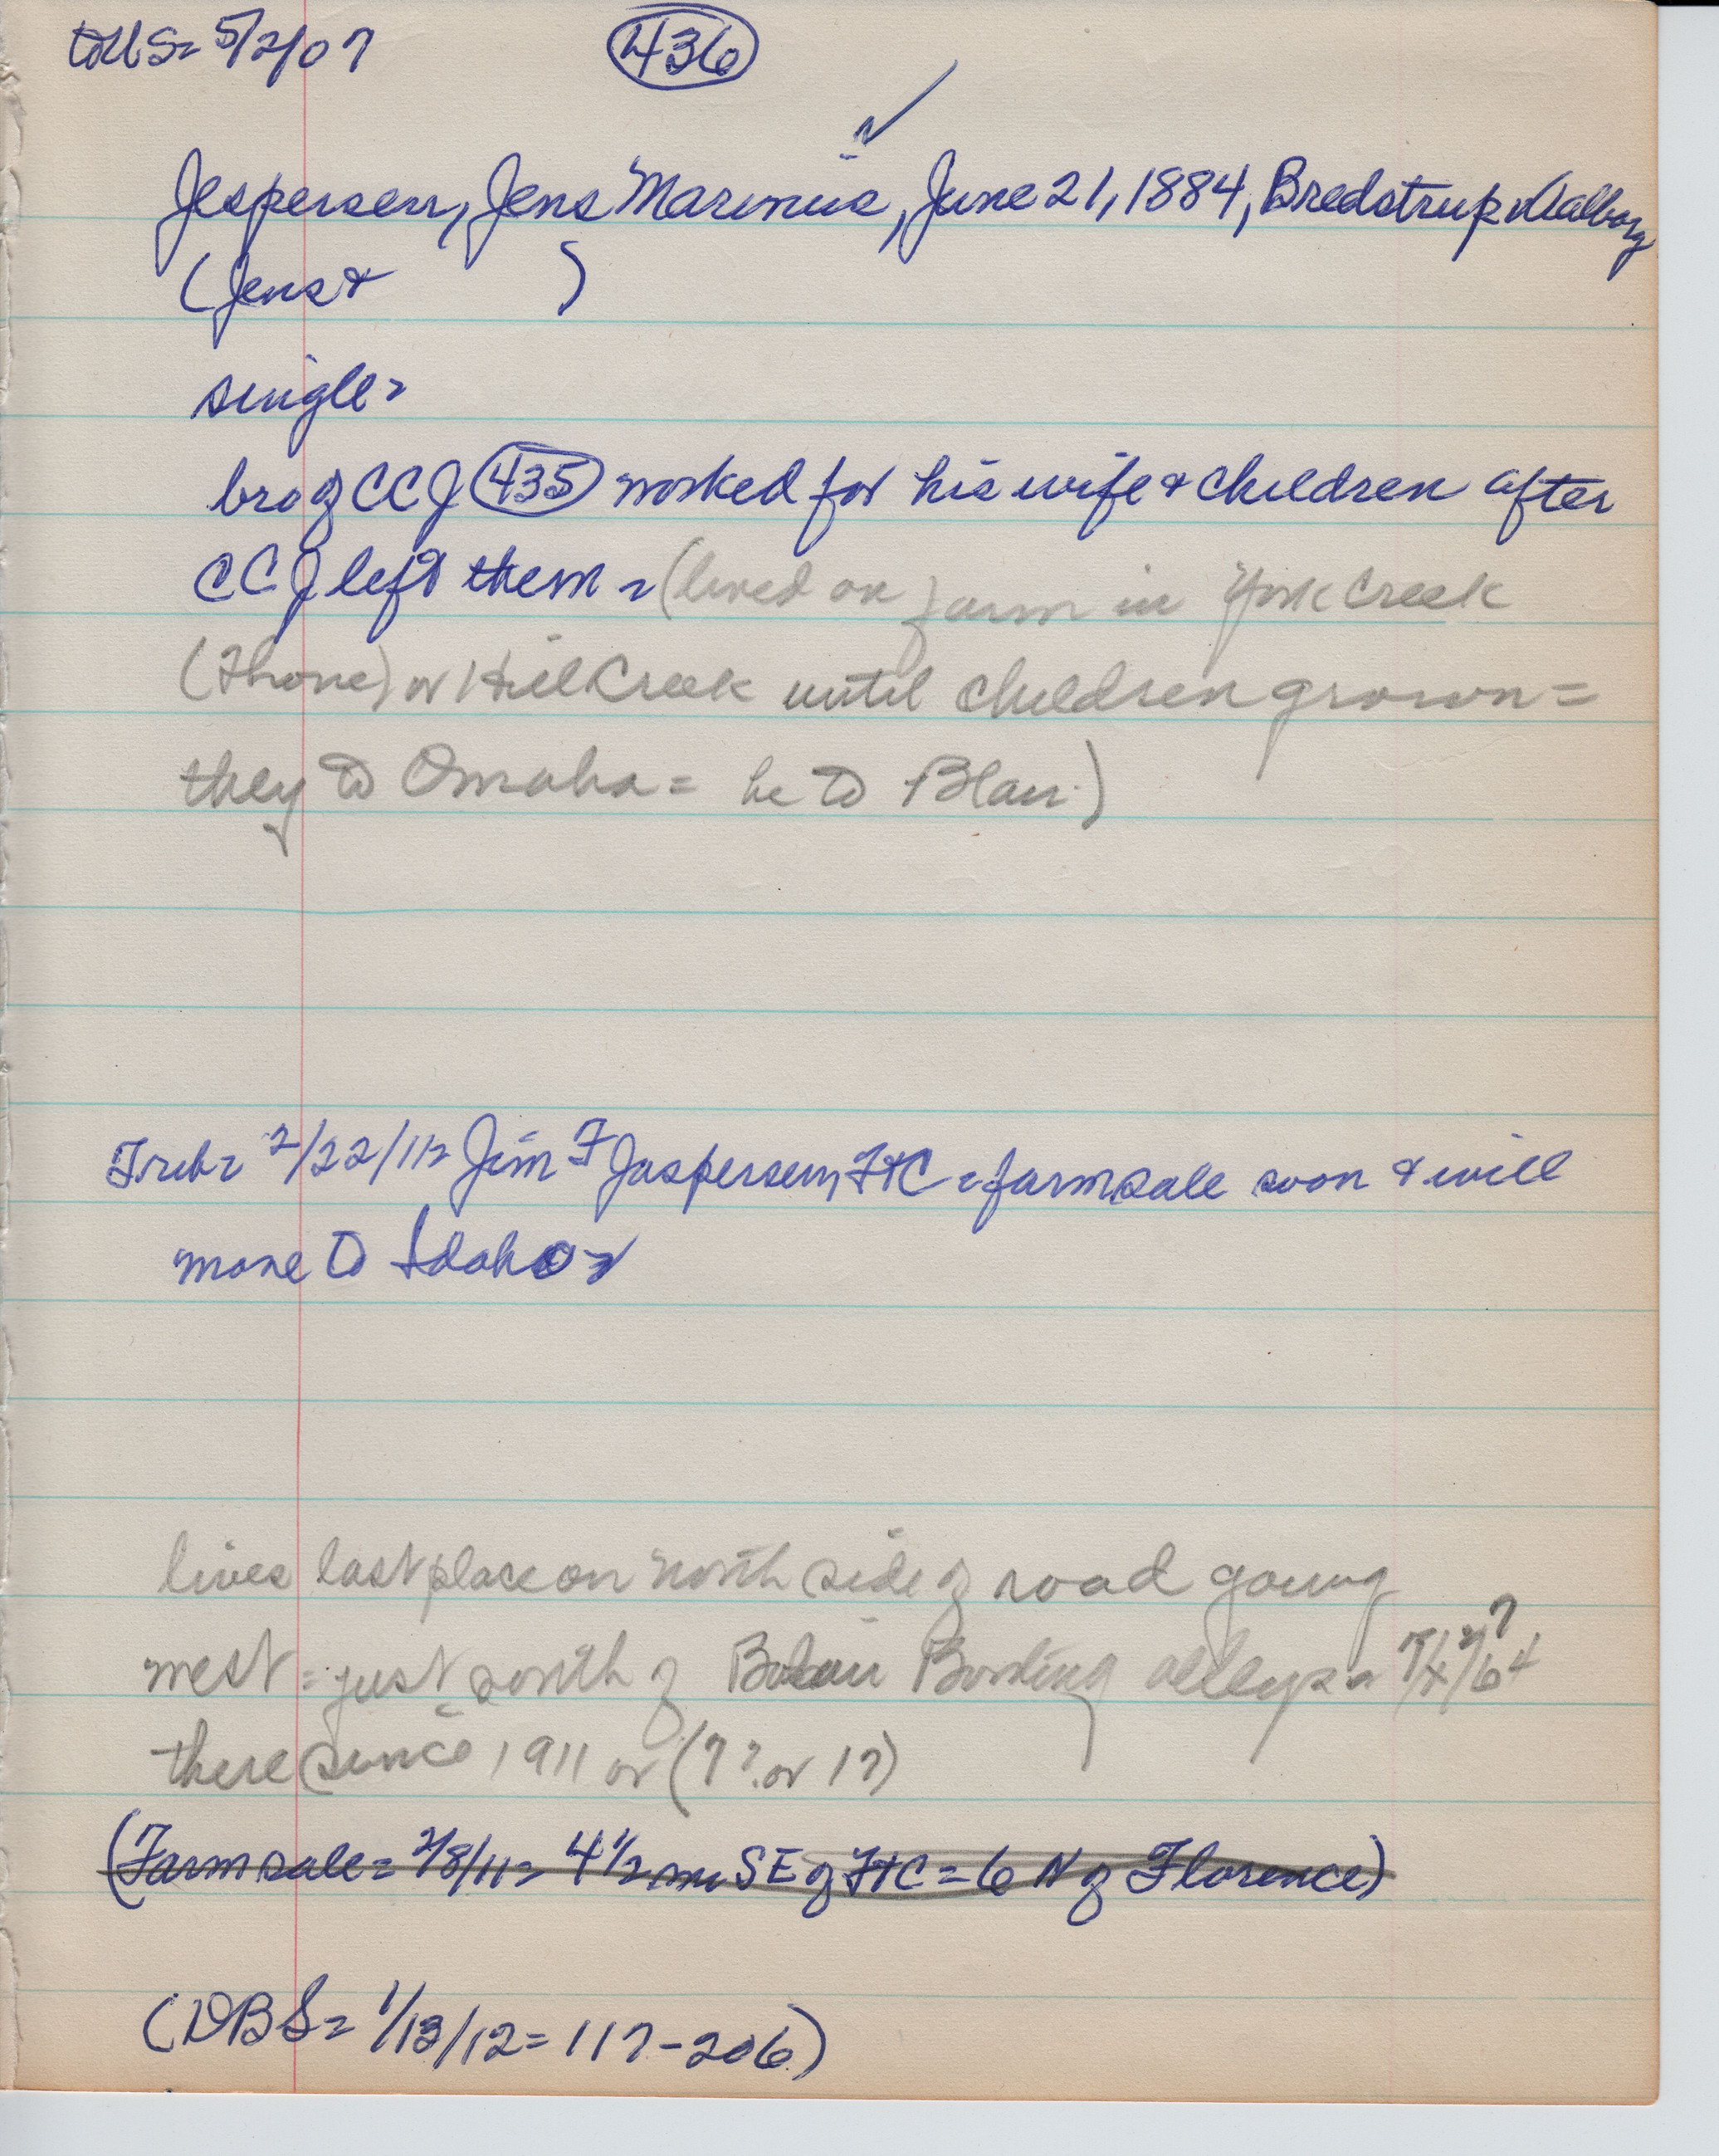 to US= 5/2/07 (436)
Jespersen, Jens Marinus, June 21, 1884, Bredstrup v Aalborg
(Jens + )
single=
bro of CCJ (435) worked for his wife + children after
CCJ left them = (lived on farm in York Creek
(Thone) or Hill Creek until children grown =
they to Omaha = he to Blair)
Trib= 2/22/11= Jim F Jaspersen, FtC = farm sale soon + will
move to Idaho=
lives last place on north side of road going
west = just south of Blair Bowling alleys =
there since 1911 or (7? or 17)
(Farm sale= 2/8/11= 4 1/2 mi SE of FtC = 6 N of Florence)
(DBS= 1/13/12= 117-206)